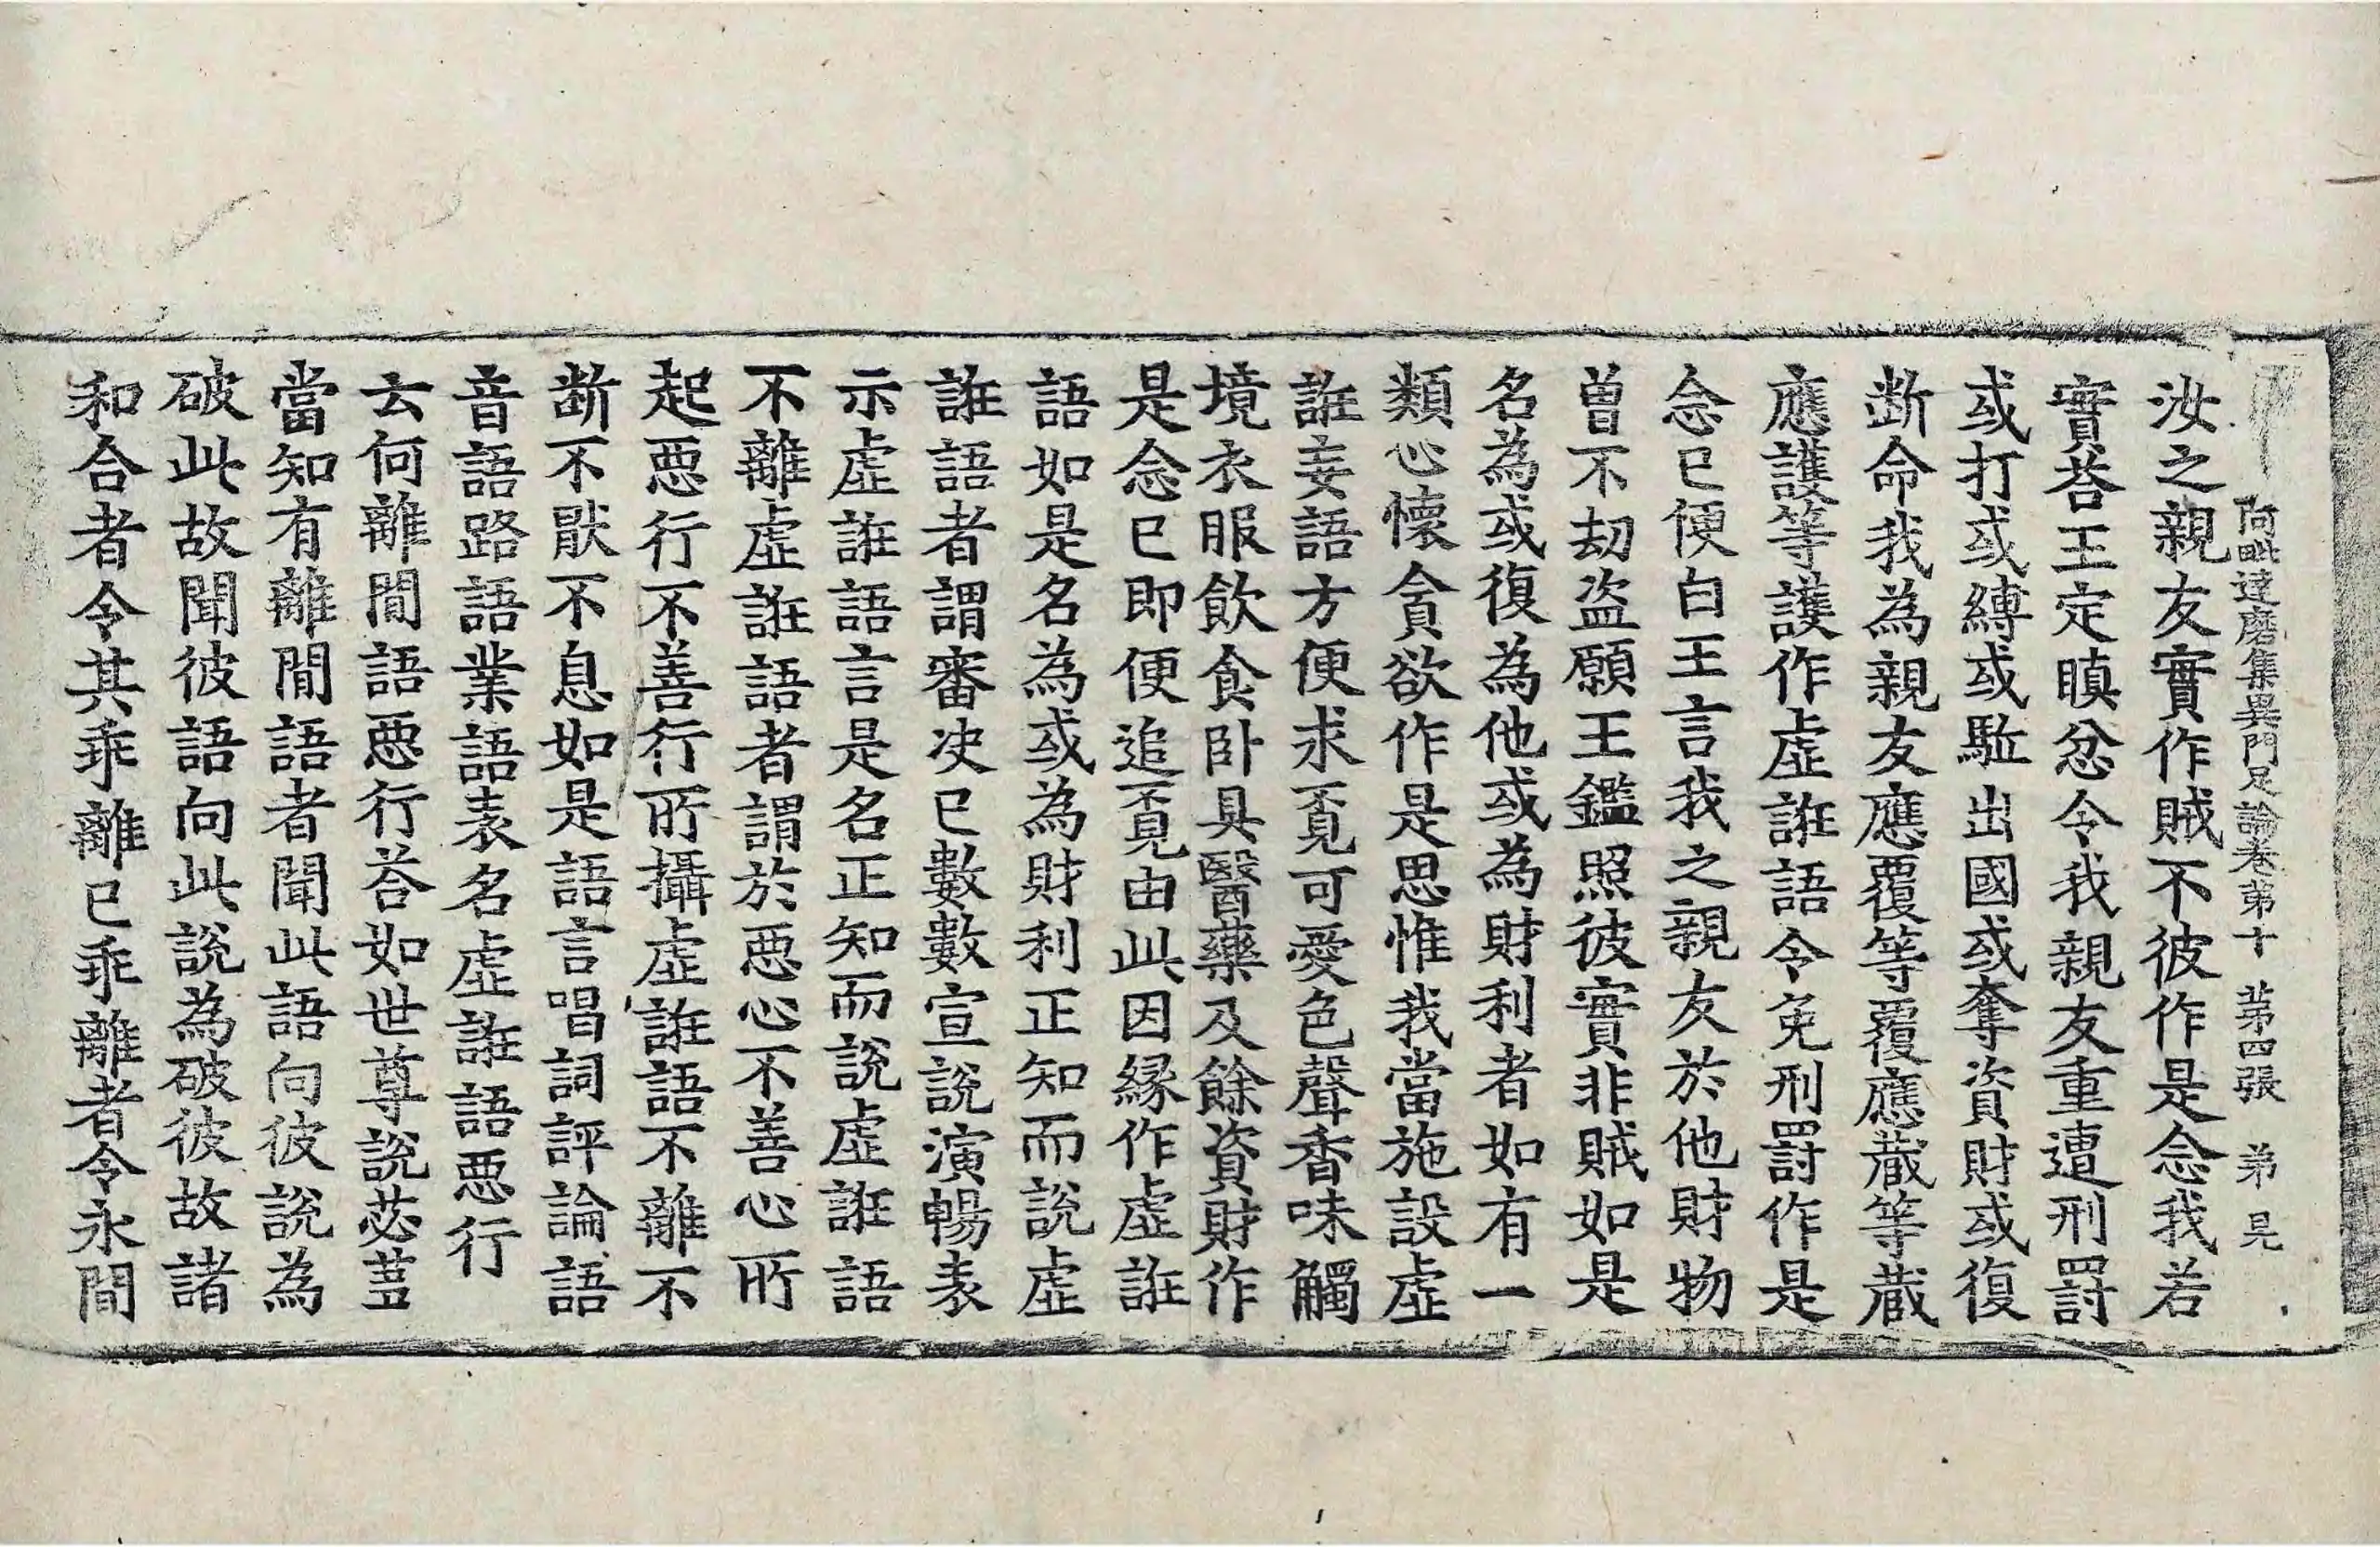 阿毗達磨集異門足論卷第十 第四張 弟 
汝之親友實作賊不彼作是念我若
實荅王定瞋忿令我親友重遭刑罸
或打或縛或駈出國或奪資財或復
断命我為親友應覆等覆應蔵等蔵
應護等護作虛誑語令免刑罸作是
念已便白王言我之親友於他財物
曽不劫盗願王鑑照彼實非賊如是
名為或復為他或為財利者如有一
類心懷貪欲作是思惟我當施設虛
誑妄語方便求覔可愛色聲香味觸
境衣服飲食卧具醫藥及餘資財作
是念已即便追覔由此因縁作虛誑
語如是名為或為財利正知而說虛
誑語者謂審决已數數宣說演暢表
示虛誑語言是名正知而說虛誑語
不離虛誑語者謂於惡心不善心所
起惡行不善行所攝虛誑語不離不
断不猒不息如是語言唱詞評論語
音語路語業語表名虛誑語惡行
云何離間語惡行荅如世尊說苾蒭
當知有離間語者聞此語向彼說為
破此故聞彼語向此說為破彼故諸
和合者令其乖離已乖離者令永間